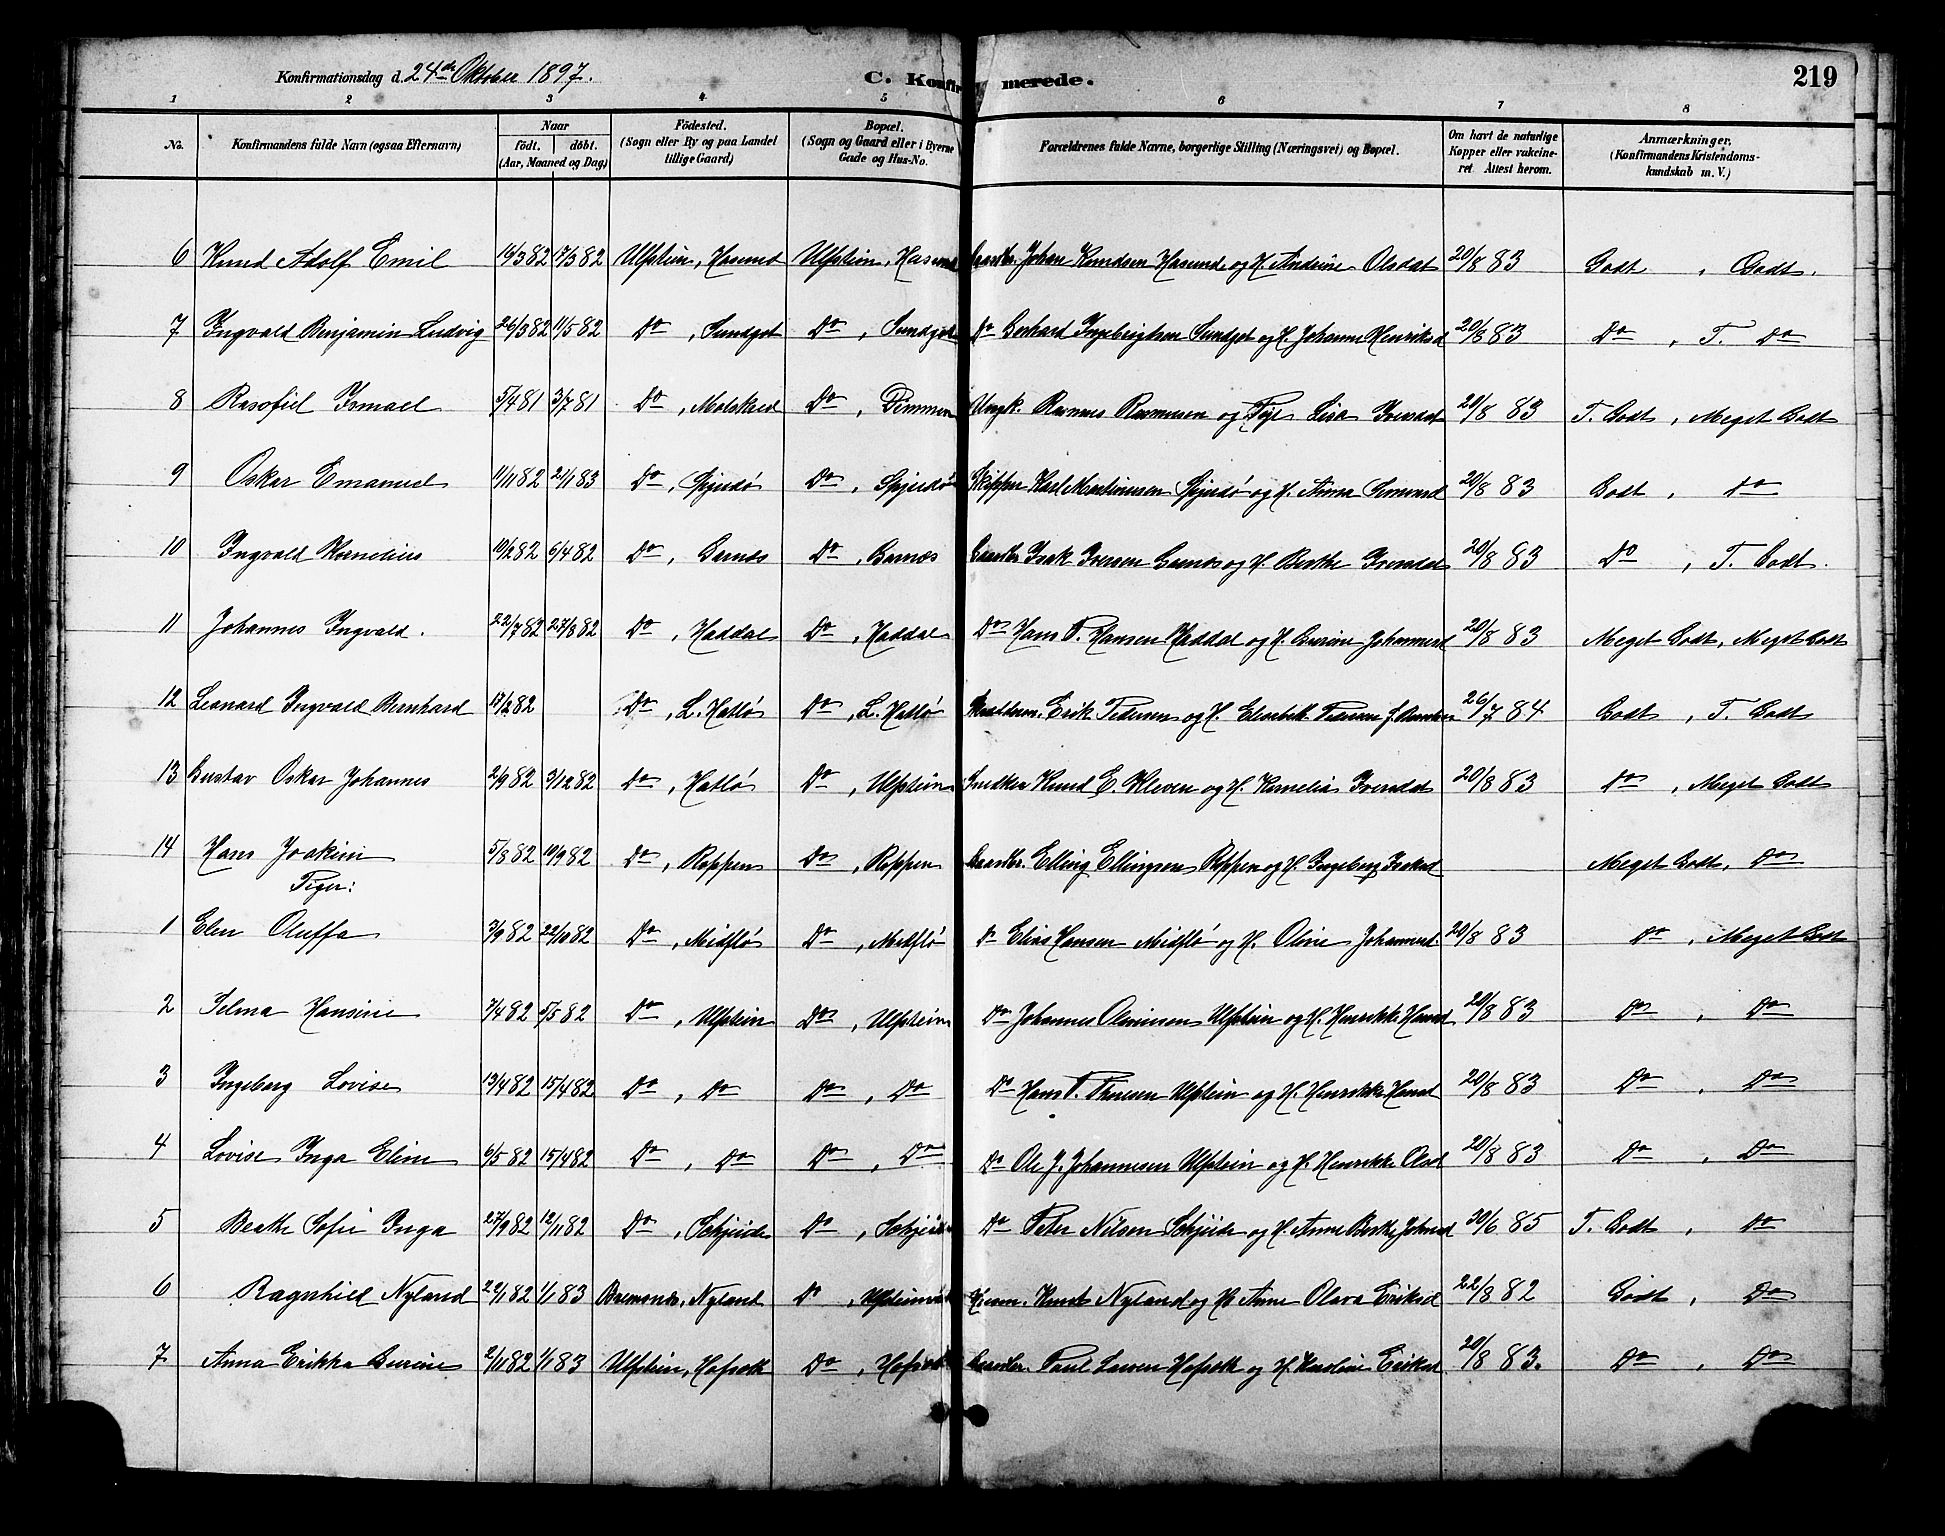 Konfirmationsdag d. 24de Oktober 1897. C. Konfirmerede. 219
1 2 3 4 5 6 7 8
No. Konfirmandens fulde Navn (ogsaa Efternavn) Naar födt. döbt. (Aar, Maaned og Dag) Födested. (Sogn eller By og paa Landet tillige Gaard) Bopæl. (Sogn og Gaard eller i Byerne Gade og Hus-No. Forældrenes fulde Navne, borgerlige Stilling (Næringsvei) og Bopæl. Om havt de naturlige Kopper eller vakcineret. Attest herom. Anmærkninger. (Konfirmandens Kristendomskundskab m. V.)
6 Knud Adolf Emil 14/3 82 17/3 82 Ulfstein, Hasund Ulfstein, Hasund Gaardbr. Johan Knudsen Hasund og H. Andrine Olsdat 20/8 83 Godt, Godt.
7 Ingvald Benjamin Ludvig 26/3 82 11/5 82 Do, Sundgot Do, Sundgot Do Berhard Ingebrigtsen Sundgot og H. Johanne Henriksd 20/8 83 Do, T. Do
8 Rasofiel Ismael 5/4 81 3/7 81 Do, Molskred Do, Dimmen Ungk. Rasmus Rasmussen og Pige Lisa Iversdat 20/8 83 T. Godt, Meget Godt
9 Oskar Emanuel 11/11 82 21/1 83 Do, Spjudø Do, Spjudø Skipper Karl Martinusen Spjudø og H. Anna 20/8 83 Godt, Do
10 Ingvald Kornelius 10/2 82 6/4 82 Do, Garnæs Do, Garnæs Gaardbr Isak Iversen Garnæs og H. Berthe Iversdat 20/8 83 Do, T. Godt.
11 Johannes Ingvald. 22/7 82 27/8 82 Do, Haddal Do, Haddal Do Hans P. Hansen Haddal og H. Gurine Johannesd 20/8 83 Meget Godt, Meget Godt
12 Leonard Ingvald Bernhard 17/2 82 Do, L. Hatlø Do, L. Hatlø Erik Pedersen og H. Elisebet Pedersen 26/7 84 Godt, T. Godt
13 Gustav Oskar Johannes 2/9 82 3/12 82 Do, Hatlø Do, Ulfstein Snedker Knud E. Kleven og H. Kornelia Iversdat 20/8 83 Do, Meget Godt
14 Hans Joakim 5/8 82 10/9 82 Do, Roppen Do, Roppen Gaardbr. Elling Ellingsen Roppen og H. Ingeborg Isaksd Meget Godt, Do
Piger:
1 Elen Oluffa 3/9 82 22/10 82 Do, Midflø Do, Midflø Do Elias Hansen Midflø og H. Oline Johannesd. 20/8 83 Do, Meget Godt
2 Selma Hansine 7/4 82 5/5 82 Do, Ulfstein Do, Ulfstein Do Johannes Ulfstein og H. Henrikke Hansd 20/8 83 Do, Do
3 Ingeborg Lovise 13/4 82 15/4 82 Do, Do Do, Do Do Hans P. Thoresen Ulfstein og H. Henrikke Hansd 20/8 83 Do, Do
4 Lovise Inga Eline 6/5 82 15/4 82 Do, Do Do, Do Do Ole J. Johannesen Ulfstein og H. Henrikke Olsd 20/8 83 Do, Do
5 Beathe Sofie Inga 27/9 82 12/11 82 Do, Skjeide Do, Skjeide Do Peter Nilsen Skjeide og H. Anne Berthe Johnsd 30/6 85 T. Godt, Do
6 Ragnhild Nyland 29/1 82 1/1 83 Bremsnæs, Nyland Do, Ulfstein Knut Nyland og H. Anne Olava Eriksd 22/8 82 Godt, Do
7 Anna Erikka Gurine 2/11 82 1/1 83 Ulfstein, Hofsæth Do, Hofsæth Gaardbr. Paul Larsen Hofsæth og H. Karoline Eriksd 20/8 83. Do, Do